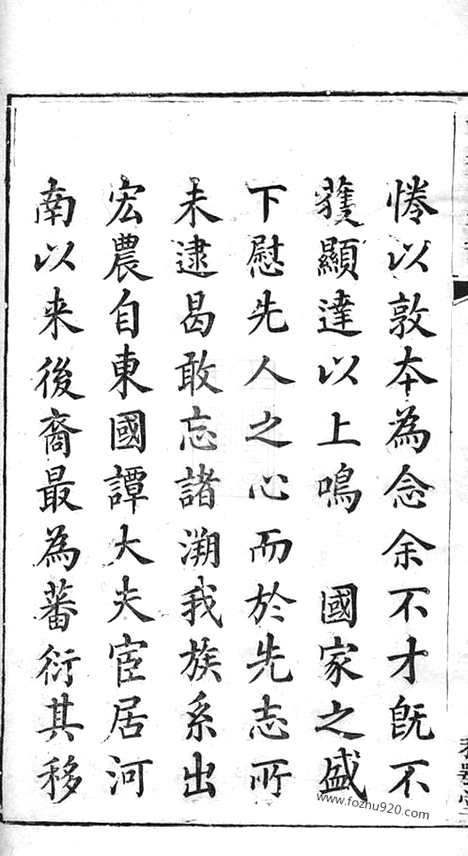 惓以敦本為念余不才旣不
獲顯達以上鳴　國家之盛
下慰先人之心而於先志所
未逮曷敢忘諸溯我族系出
宏農自東國譚大夫宦居河
南以来後裔最為蕃衍其移
www.fozhu920.com